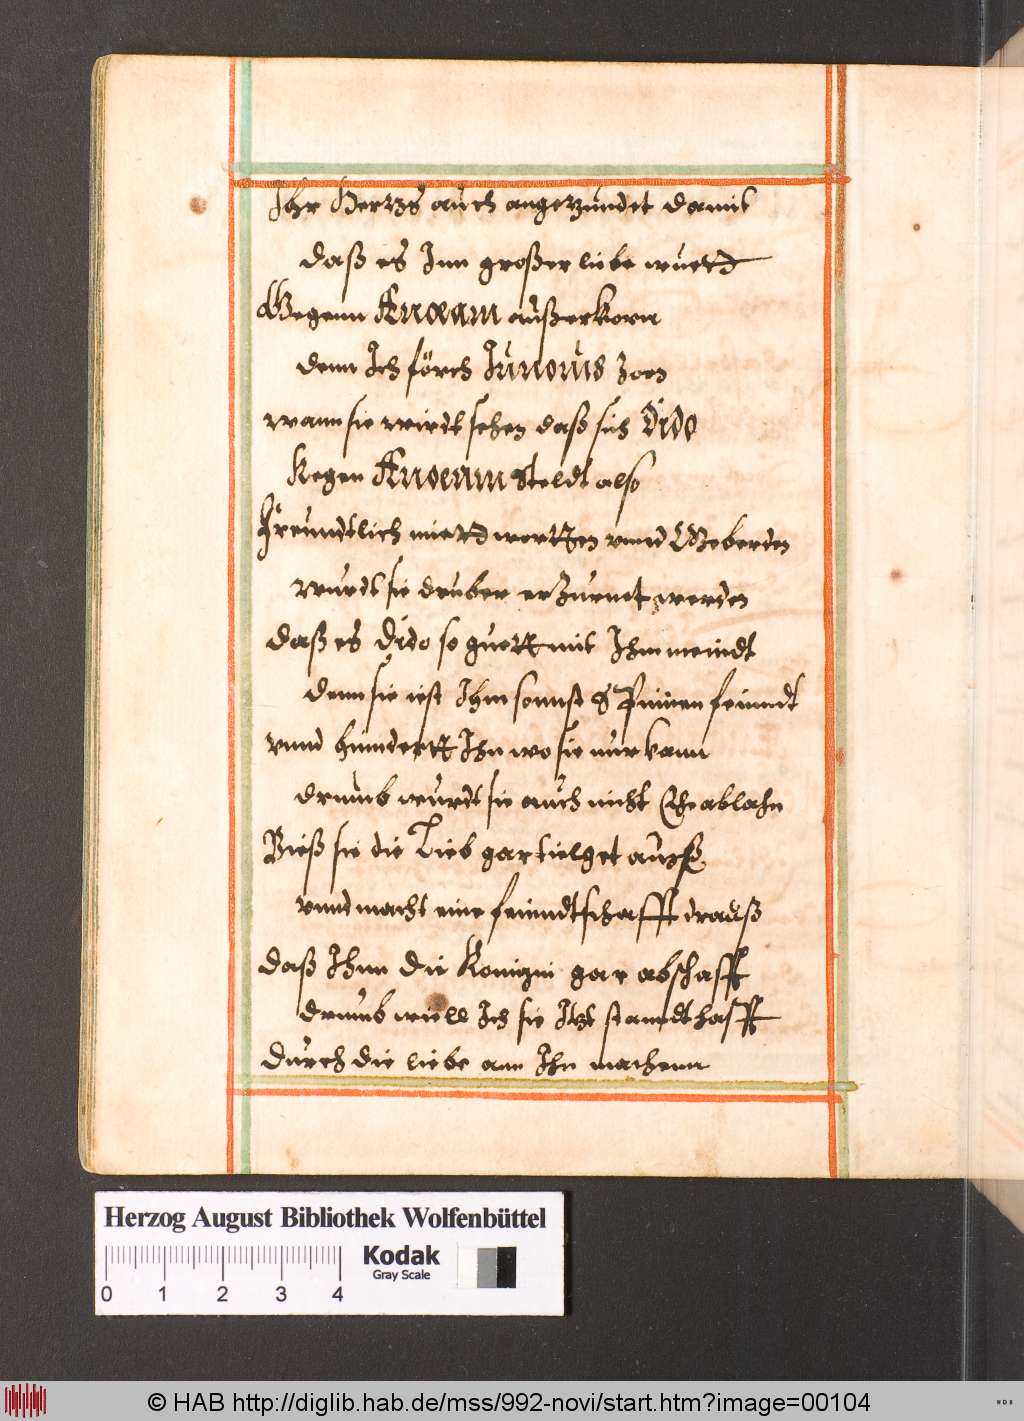 Ihr Hertzs auch angezundet damit
daß es Inn großer liebe wuett
Gegenn Aneam außerkorn
denn Ich förch Iunonis zorn
wann sie wirdt sehen daß sich Dido
Kegen Aneam steldt also
Freundtlich mitt wortten vnnd Geberden
wurdt sie druber erzurnt werden
daß es Dido so guett mit Ihm meindt
denn sie ist Ihm sonnst Spinnen feindt
vnnd hindertt Ihn wo sie nur kann
drumb wurdt sie auch nicht ehe ablahn
Bieß sie die Lieb gar tielget auß
vnnd macht eine feindtschafft drauß
daß Ihnn die Konigin gar abschafft
drumb will Ich sie Itzt standthafft
durch die liebe ann Ihn machenn
Herzog August Bibliothek Wolfenbüttel
Kodak
Gray Scale
0 1 2 3 4
© HAB http://diglib.hab.de/mss/992-novi/start.htm?image=00104